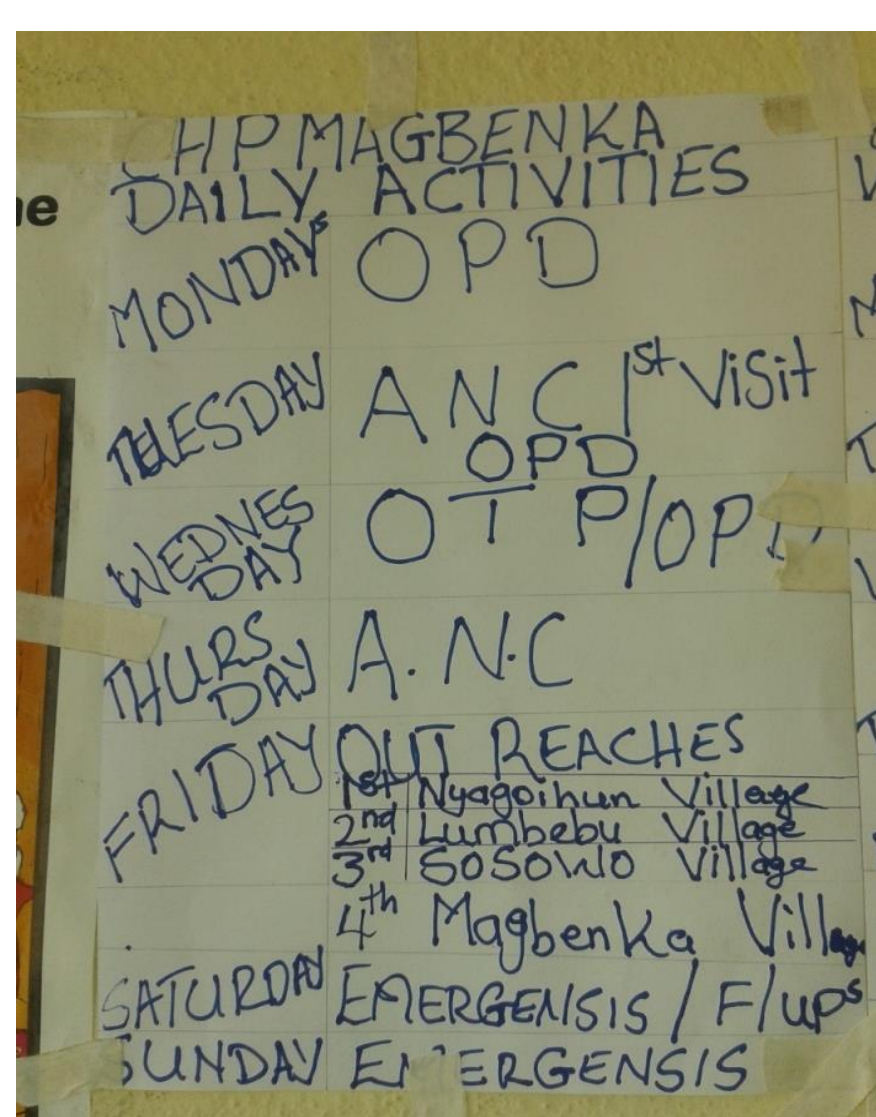 CHP MAGBENKA
DAILY ACTIVITIES
MONDAYs OPD
TUESDAY ANC 1st Visit
OPD
WEDNES
DAY OTP/OPD
THURS
DAY A.N.C
FRIDAY OUT REACHES
1st Nyagoihun Village
2nd Lumbebu Village
3rd SOSOWO Village
4th Magbenka Village
SATURDAY EMERGENSIS / F/ups
SUNDAY EMERGENSIS